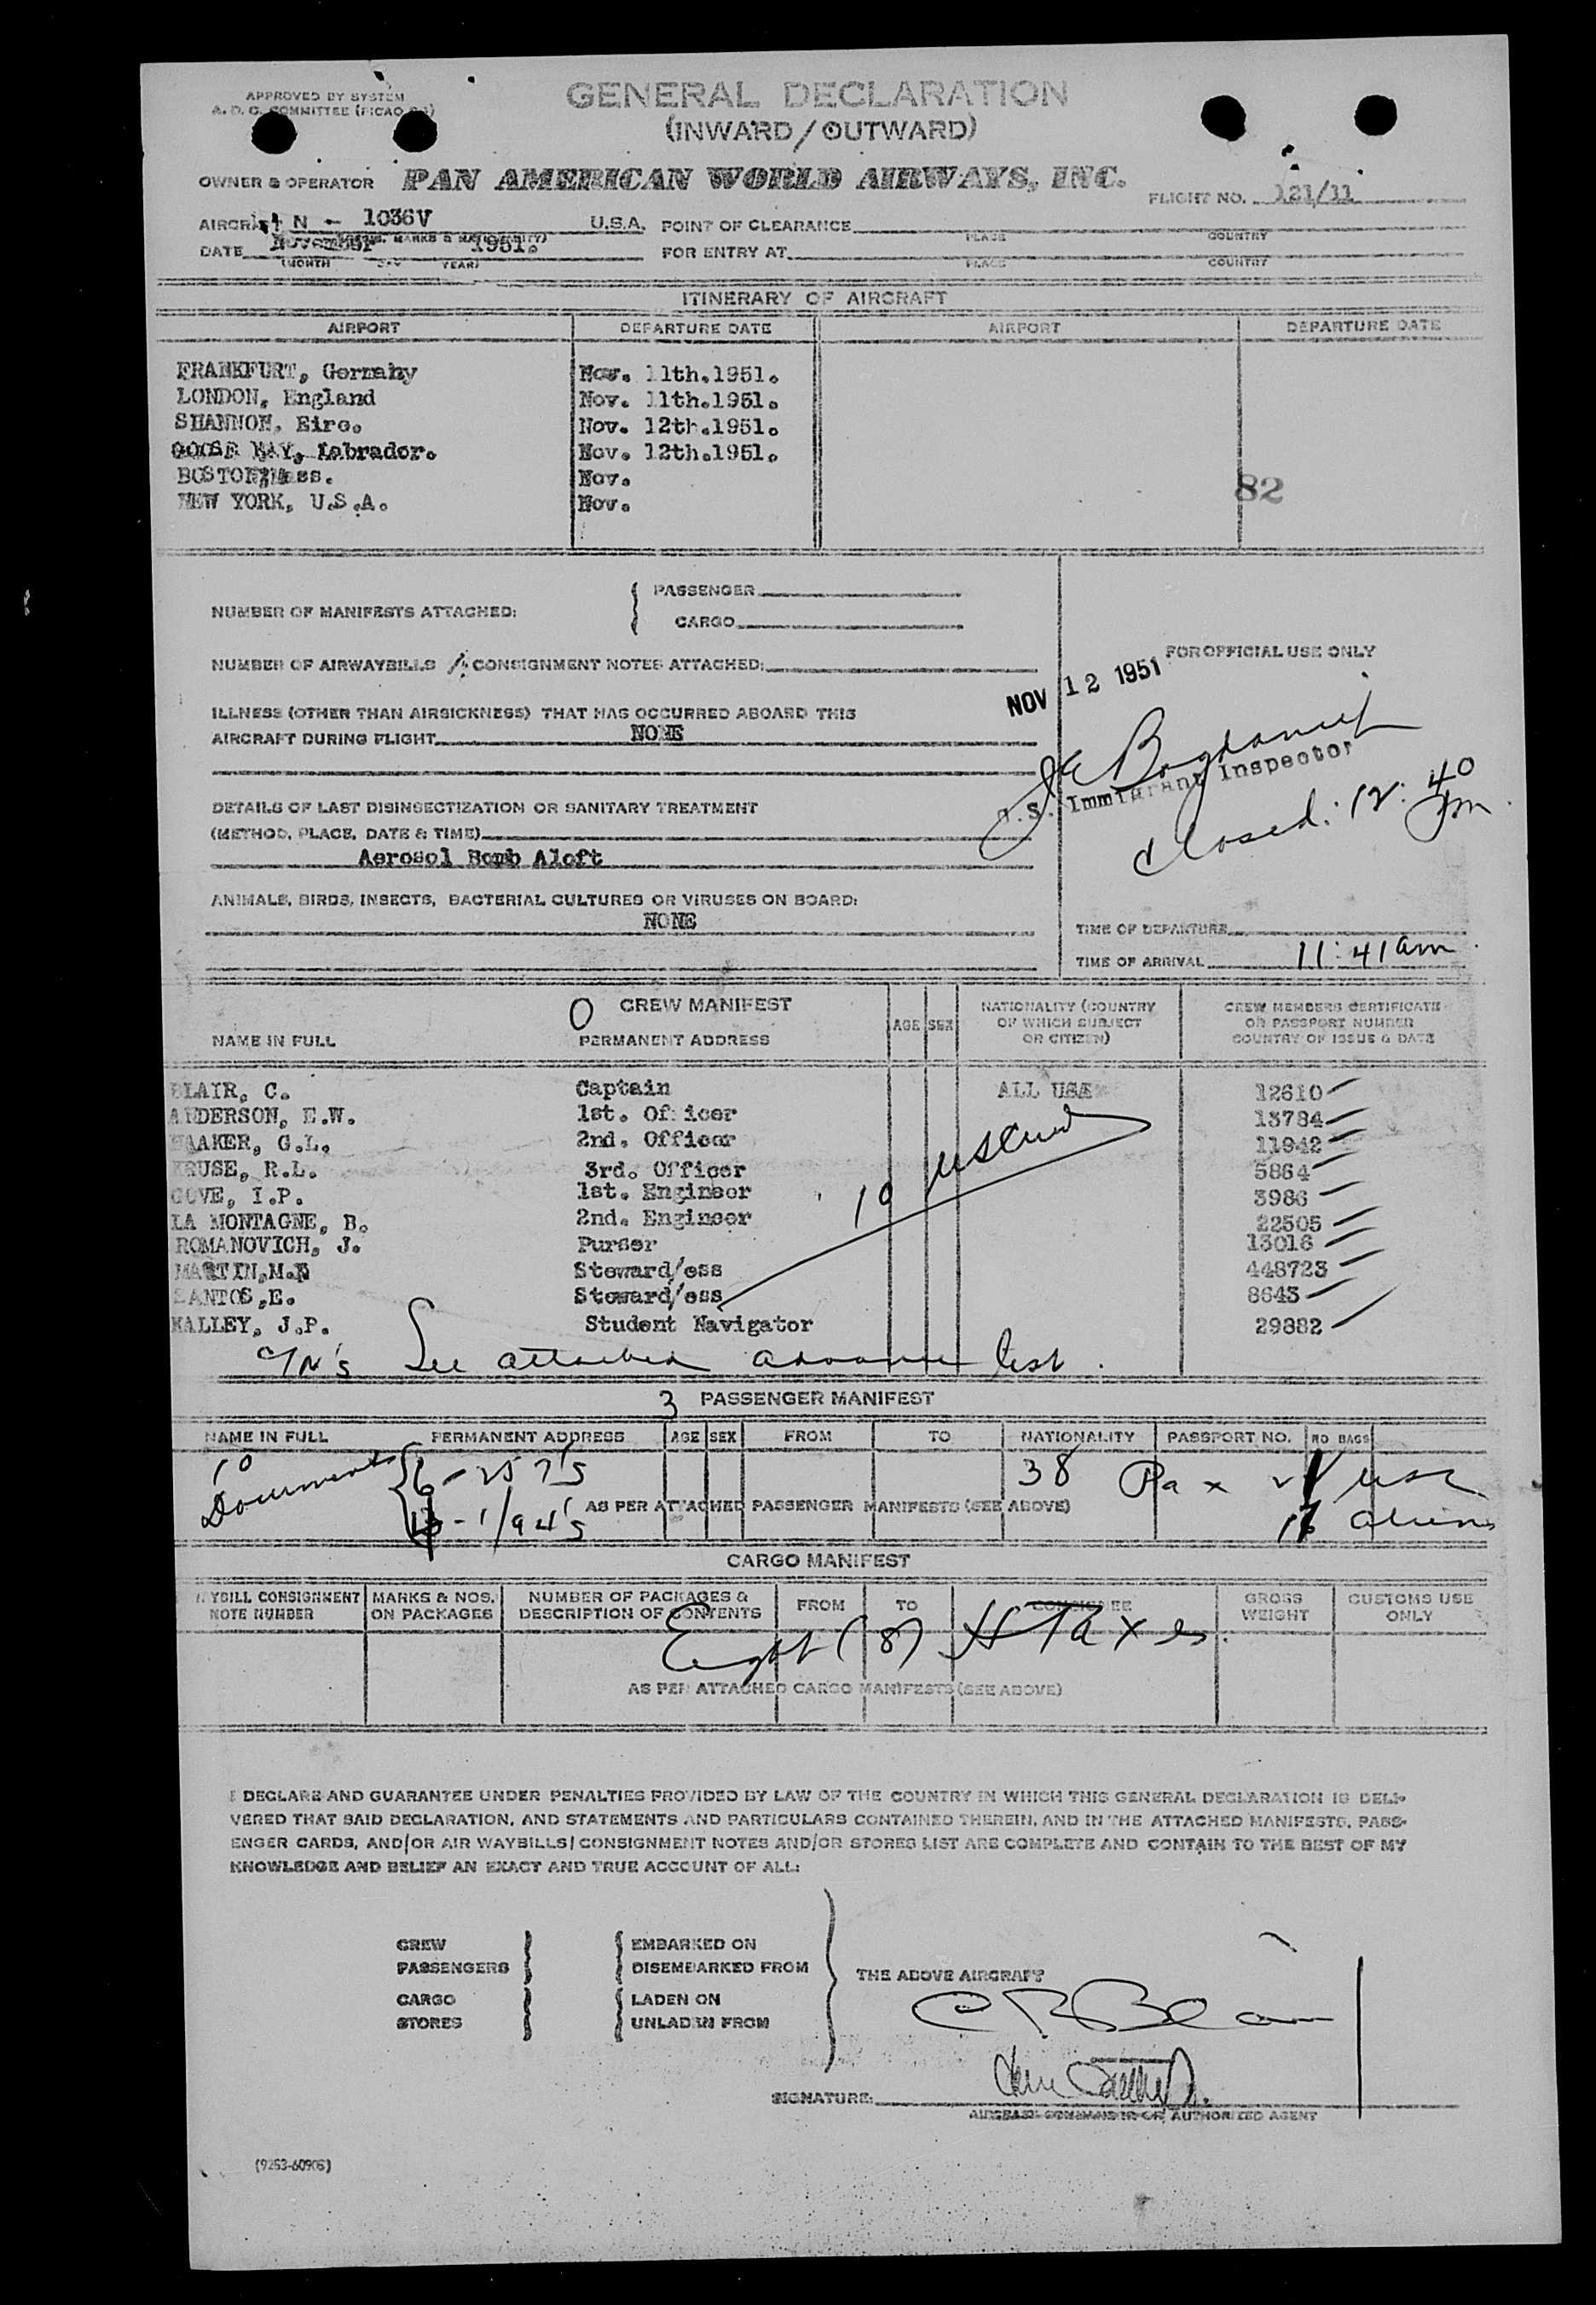 APPROVED BY SYSTEM
A. D. G. COMMITTEE
GENERAL DECLARATION
(INWARD/OUTWARD)
OWNER & OPERATOR PAN AMERICAN WORLD AIRWAYS, INC.
FLIGHT NO. 121/11
AIRCRAFT N - 1036V U.S.A.
POINT OF CLEARANCE
PLACE COUNTRY
DATE November 1951.
(MONTH DAY YEAR)
FOR ENTRY AT
PLACE COUNTRY
ITINERARY OF AIRCRAFT
AIRPORT DEPARTURE DATE AIRPORT DEPARTURE DATE
FRANKFURT, Germany Nov. 11th.1951.
LONDON, England Nov. 11th.1951.
SHANNON, Eire. Nov. 12th.1951.
GOOSE BAY, Labrador. Nov. 12th.1951.
BOSTON, Mass. Nov.
82
NEW YORK, U.S.A. Nov.
NUMBER OF MANIFESTS ATTACHED:
PASSENGER
CARGO
NUMBER OF AIRWAYBILLS / CONSIGNMENT NOTES ATTACHED:
FOR OFFICIAL USE ONLY
NOV 12 1951
ILLNESS (OTHER THAN AIRSICKNESS) THAT HAS OCCURRED ABOARD THIS
AIRCRAFT DURING FLIGHT NONE
U.S. Immigrant Inspector
closed: 12:40 pm
DETAILS OF LAST DISINSECTIZATION OR SANITARY TREATMENT
(METHOD, PLACE, DATE & TIME)
Aerosol Bomb Aloft
ANIMALS, BIRDS, INSECTS, BACTERIAL CULTURES OR VIRUSES ON BOARD:
NONE
TIME OF DEPARTURE
TIME OF ARRIVAL 11:41 am
O CREW MANIFEST
NAME IN FULL PERMANENT ADDRESS AGE SEX NATIONALITY (COUNTRY OF WHICH SUBJECT OR CITIZEN) CREW MEMBERS CERTIFICATE OR PASSPORT NUMBER COUNTRY OF ISSUE & DATE
BLAIR, C. Captain ALL USA 12610
ANDERSON, E.W. 1st. Officer 13784
HAAKER, G.L. 2nd. Officer 11942
KRUSE, R.L. 3rd. Officer 5864
GOVE, I.P. 1st. Engineer 3986
LA MONTAGNE, B. 2nd. Engineer 22505
ROMANOVICH, J. Purser 13016
MARTIN, M. Steward/ess 448723
SANTOS, E. Steward/ess 8643
MALLEY, J.P. Student Navigator 29882
10
See attached advance list.
3 PASSENGER MANIFEST
NAME IN FULL PERMANENT ADDRESS AGE SEX FROM TO NATIONALITY PASSPORT NO. NO BAGS
Documents 6 - 257's 38 Pax usc
- 1/94's AS PER ATTACHED PASSENGER MANIFESTS (SEE ABOVE) aliens
CARGO MANIFEST
WAYBILL CONSIGNMENT NOTE NUMBER MARKS & NOS. ON PACKAGES NUMBER OF PACKAGES & DESCRIPTION OF CONTENTS FROM TO CONSIGNEE GROSS WEIGHT CUSTOMS USE ONLY
Eight (8) H Taxes.
AS PER ATTACHED CARGO MANIFESTS (SEE ABOVE)
I DECLARE AND GUARANTEE UNDER PENALTIES PROVIDED BY LAW OF THE COUNTRY IN WHICH THIS GENERAL DECLARATION IS DELI-
VERED THAT SAID DECLARATION, AND STATEMENTS AND PARTICULARS CONTAINED THEREIN, AND IN THE ATTACHED MANIFESTS, PASS-
ENGER CARDS, AND/OR AIR WAYBILLS/CONSIGNMENT NOTES AND/OR STORES LIST ARE COMPLETE AND CONTAIN TO THE BEST OF MY
KNOWLEDGE AND BELIEF AN EXACT AND TRUE ACCOUNT OF ALL:
CREW EMBARKED ON
PASSENGERS DISEMBARKED FROM
THE ABOVE AIRCRAFT
CARGO LADEN ON
STORES UNLADEN FROM
C B Blair
SIGNATURE:
AIRCRAFT COMMANDER OR AUTHORIZED AGENT
(9253-60905)